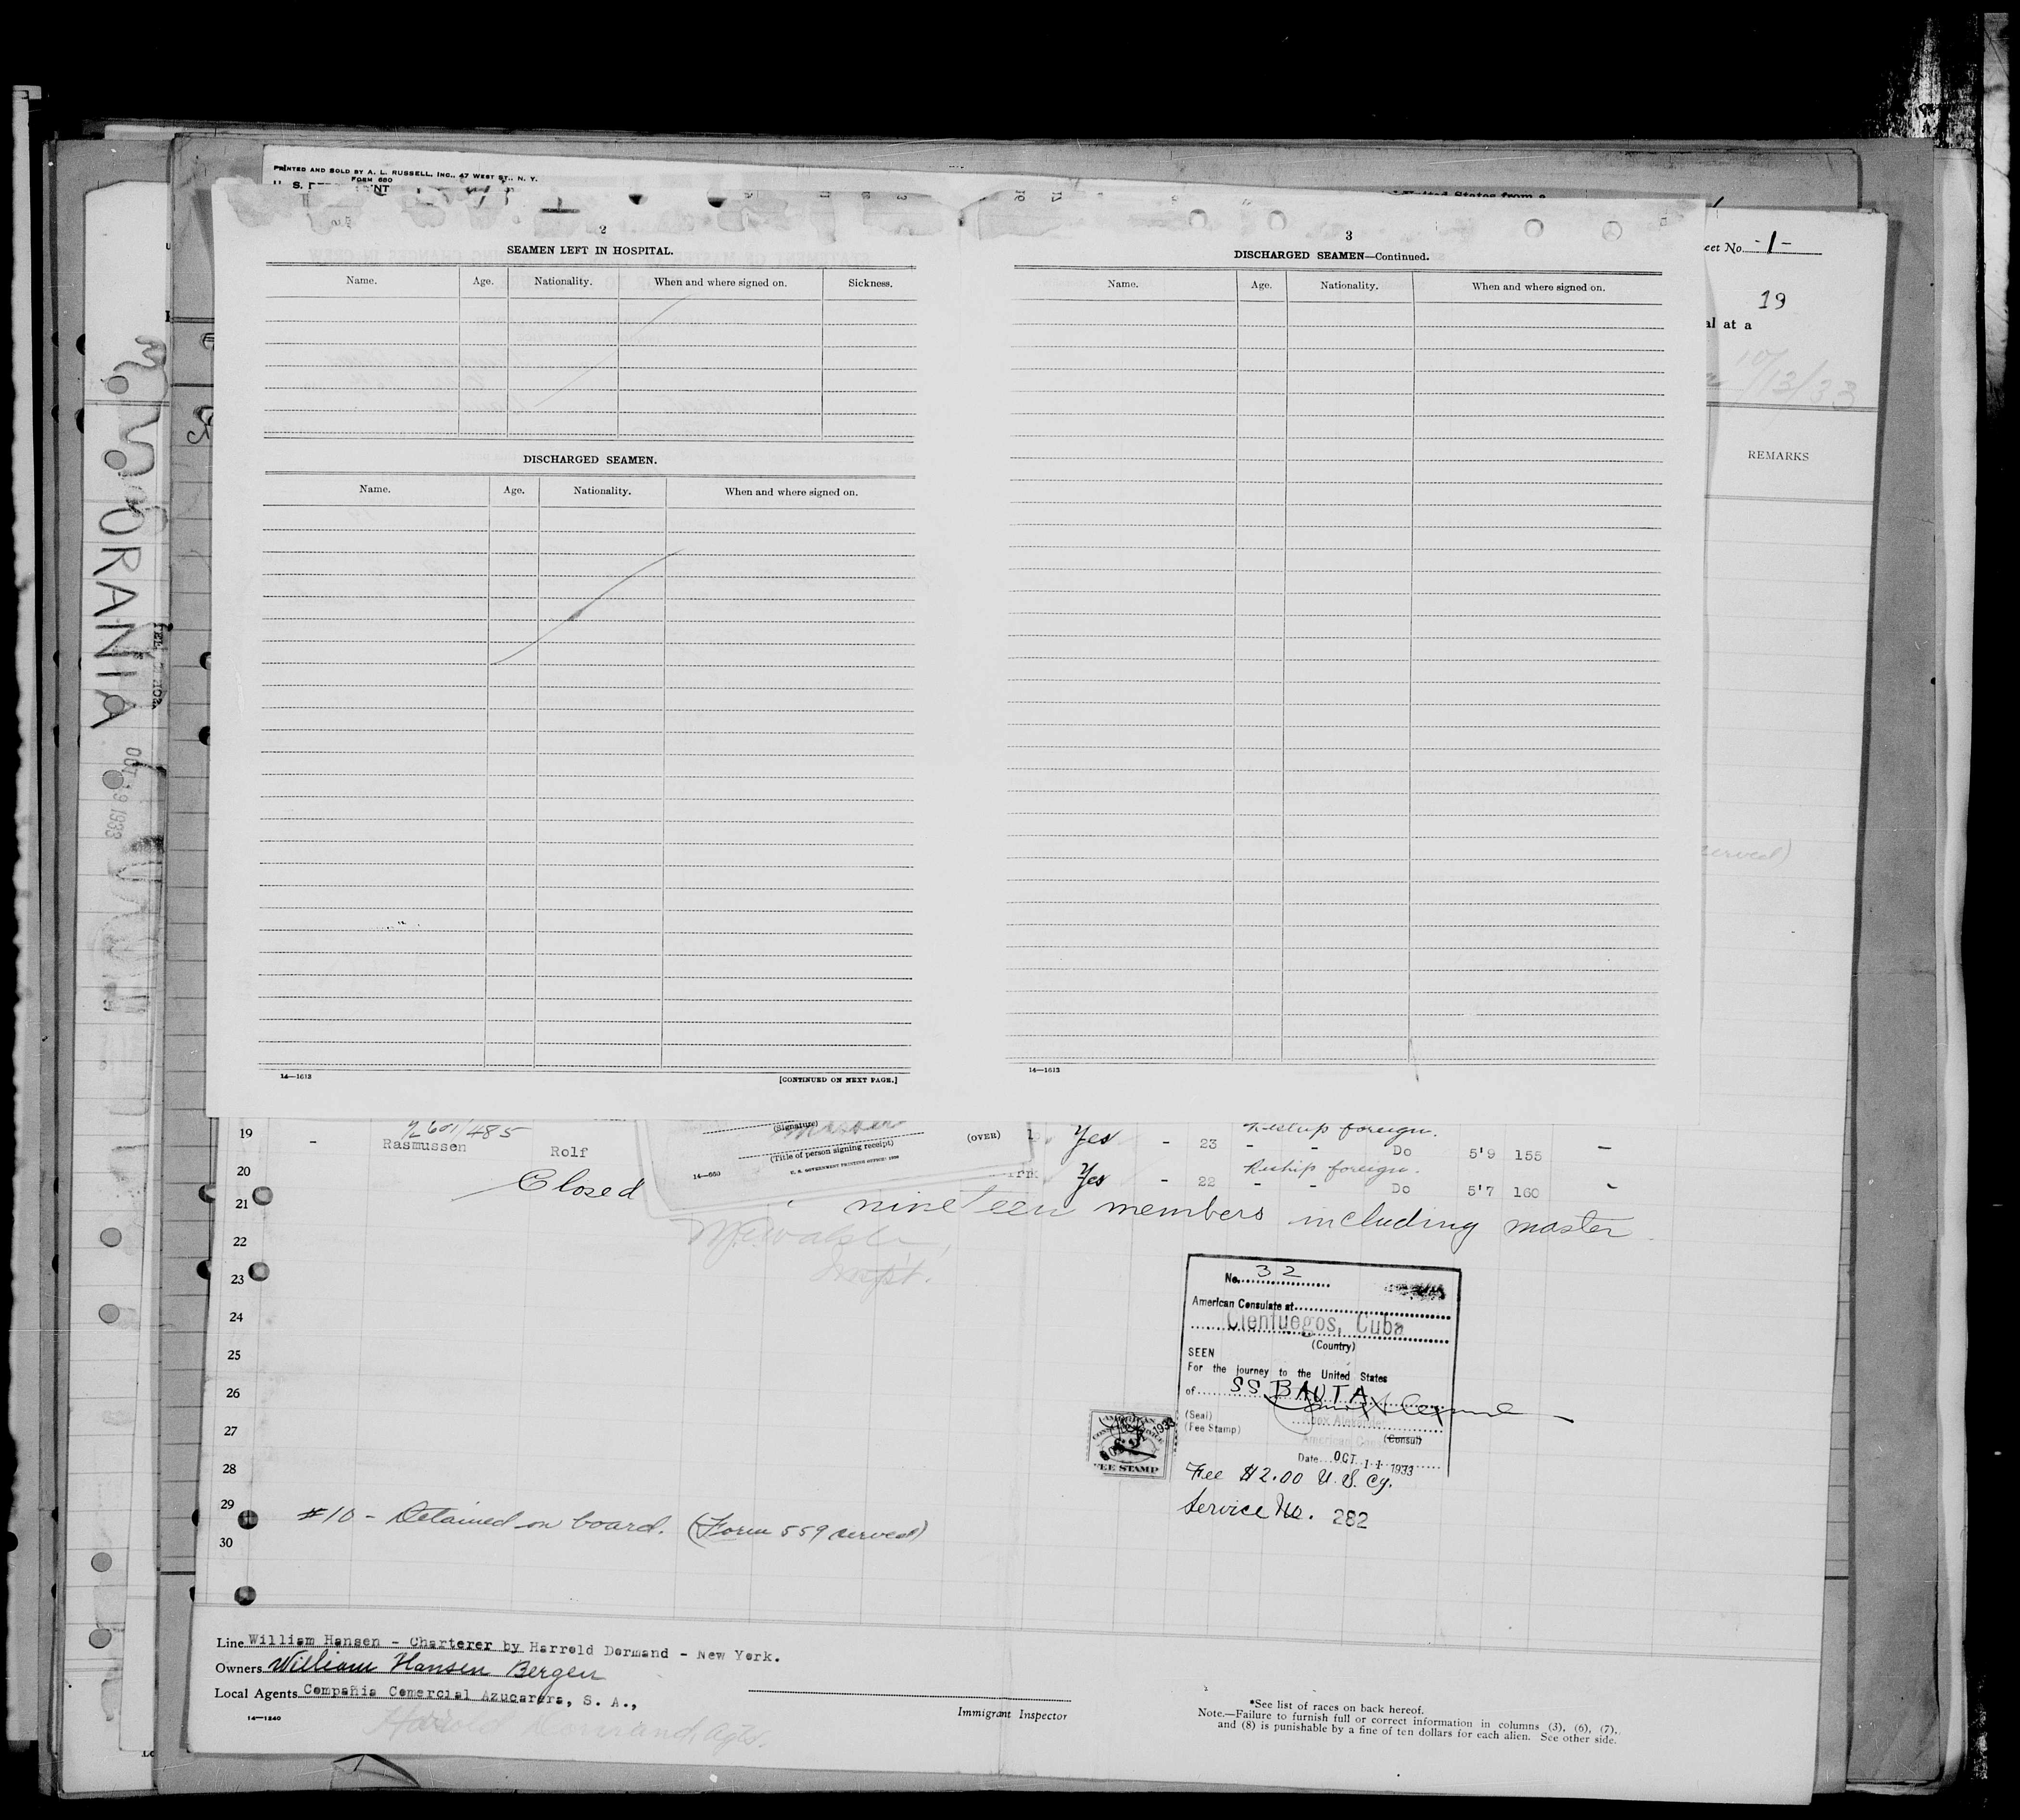 PRINTED AND SOLD BY A. L. RUSSELL, INC., 47 WEST ST., N. Y.
FORM 680
U. S.
United States from a
2
SEAMEN LEFT IN HOSPITAL.
Name. Age. Nationality. When and where signed on. Sickness.
DISCHARGED SEAMEN.
Name. Age. Nationality. When and where signed on.
14—1613
[CONTINUED ON NEXT PAGE.]
3
DISCHARGED SEAMEN—Continued.
Name. Age. Nationality. When and where signed on.
14—1613
eet No. -1-
19
al at a
10/13/33
REMARKS
served)
ORANIA
OCT 9 1933
19 - Rasmussen Rolf Yes - 23 - - Do 5'9 155 -
601/485
Reship foreign.
(Signature)
Master
(Title of person signing receipt)
14—660
U. S. GOVERNMENT PRINTING OFFICE
(OVER)
20 Yes - 22 - - Do 5'7 160 -
Reship foreign.
Closed
21 nineteen members including master
22
Inspt.
23
24
25
26
27
28
29
30
No. 32
American Consulate at
Cienfuegos, Cuba
(Country)
SEEN
For the journey to the United States
of SS BAUTA
(Seal)
(Fee Stamp)
Knox Alexander
American
(Consul)
Date OCT 11 1933
AMERICAN
CONSULAR SERVICE
FEE STAMP
1933
Fee $2.00 U.S. Cy.
Service No. 282
#10 - Detained on board. (Form 559 served)
Line William Hansen - Charterer by Harrold Dormand - New York.
Owners William Hansen Bergen
Local Agents Compañia Comercial Azucarera, S. A.,
14—1240
Harold Dormand, Agts.
Immigrant Inspector
*See list of races on back hereof.
Note.—Failure to furnish full or correct information in columns (3), (6), (7),
and (8) is punishable by a fine of ten dollars for each alien. See other side.